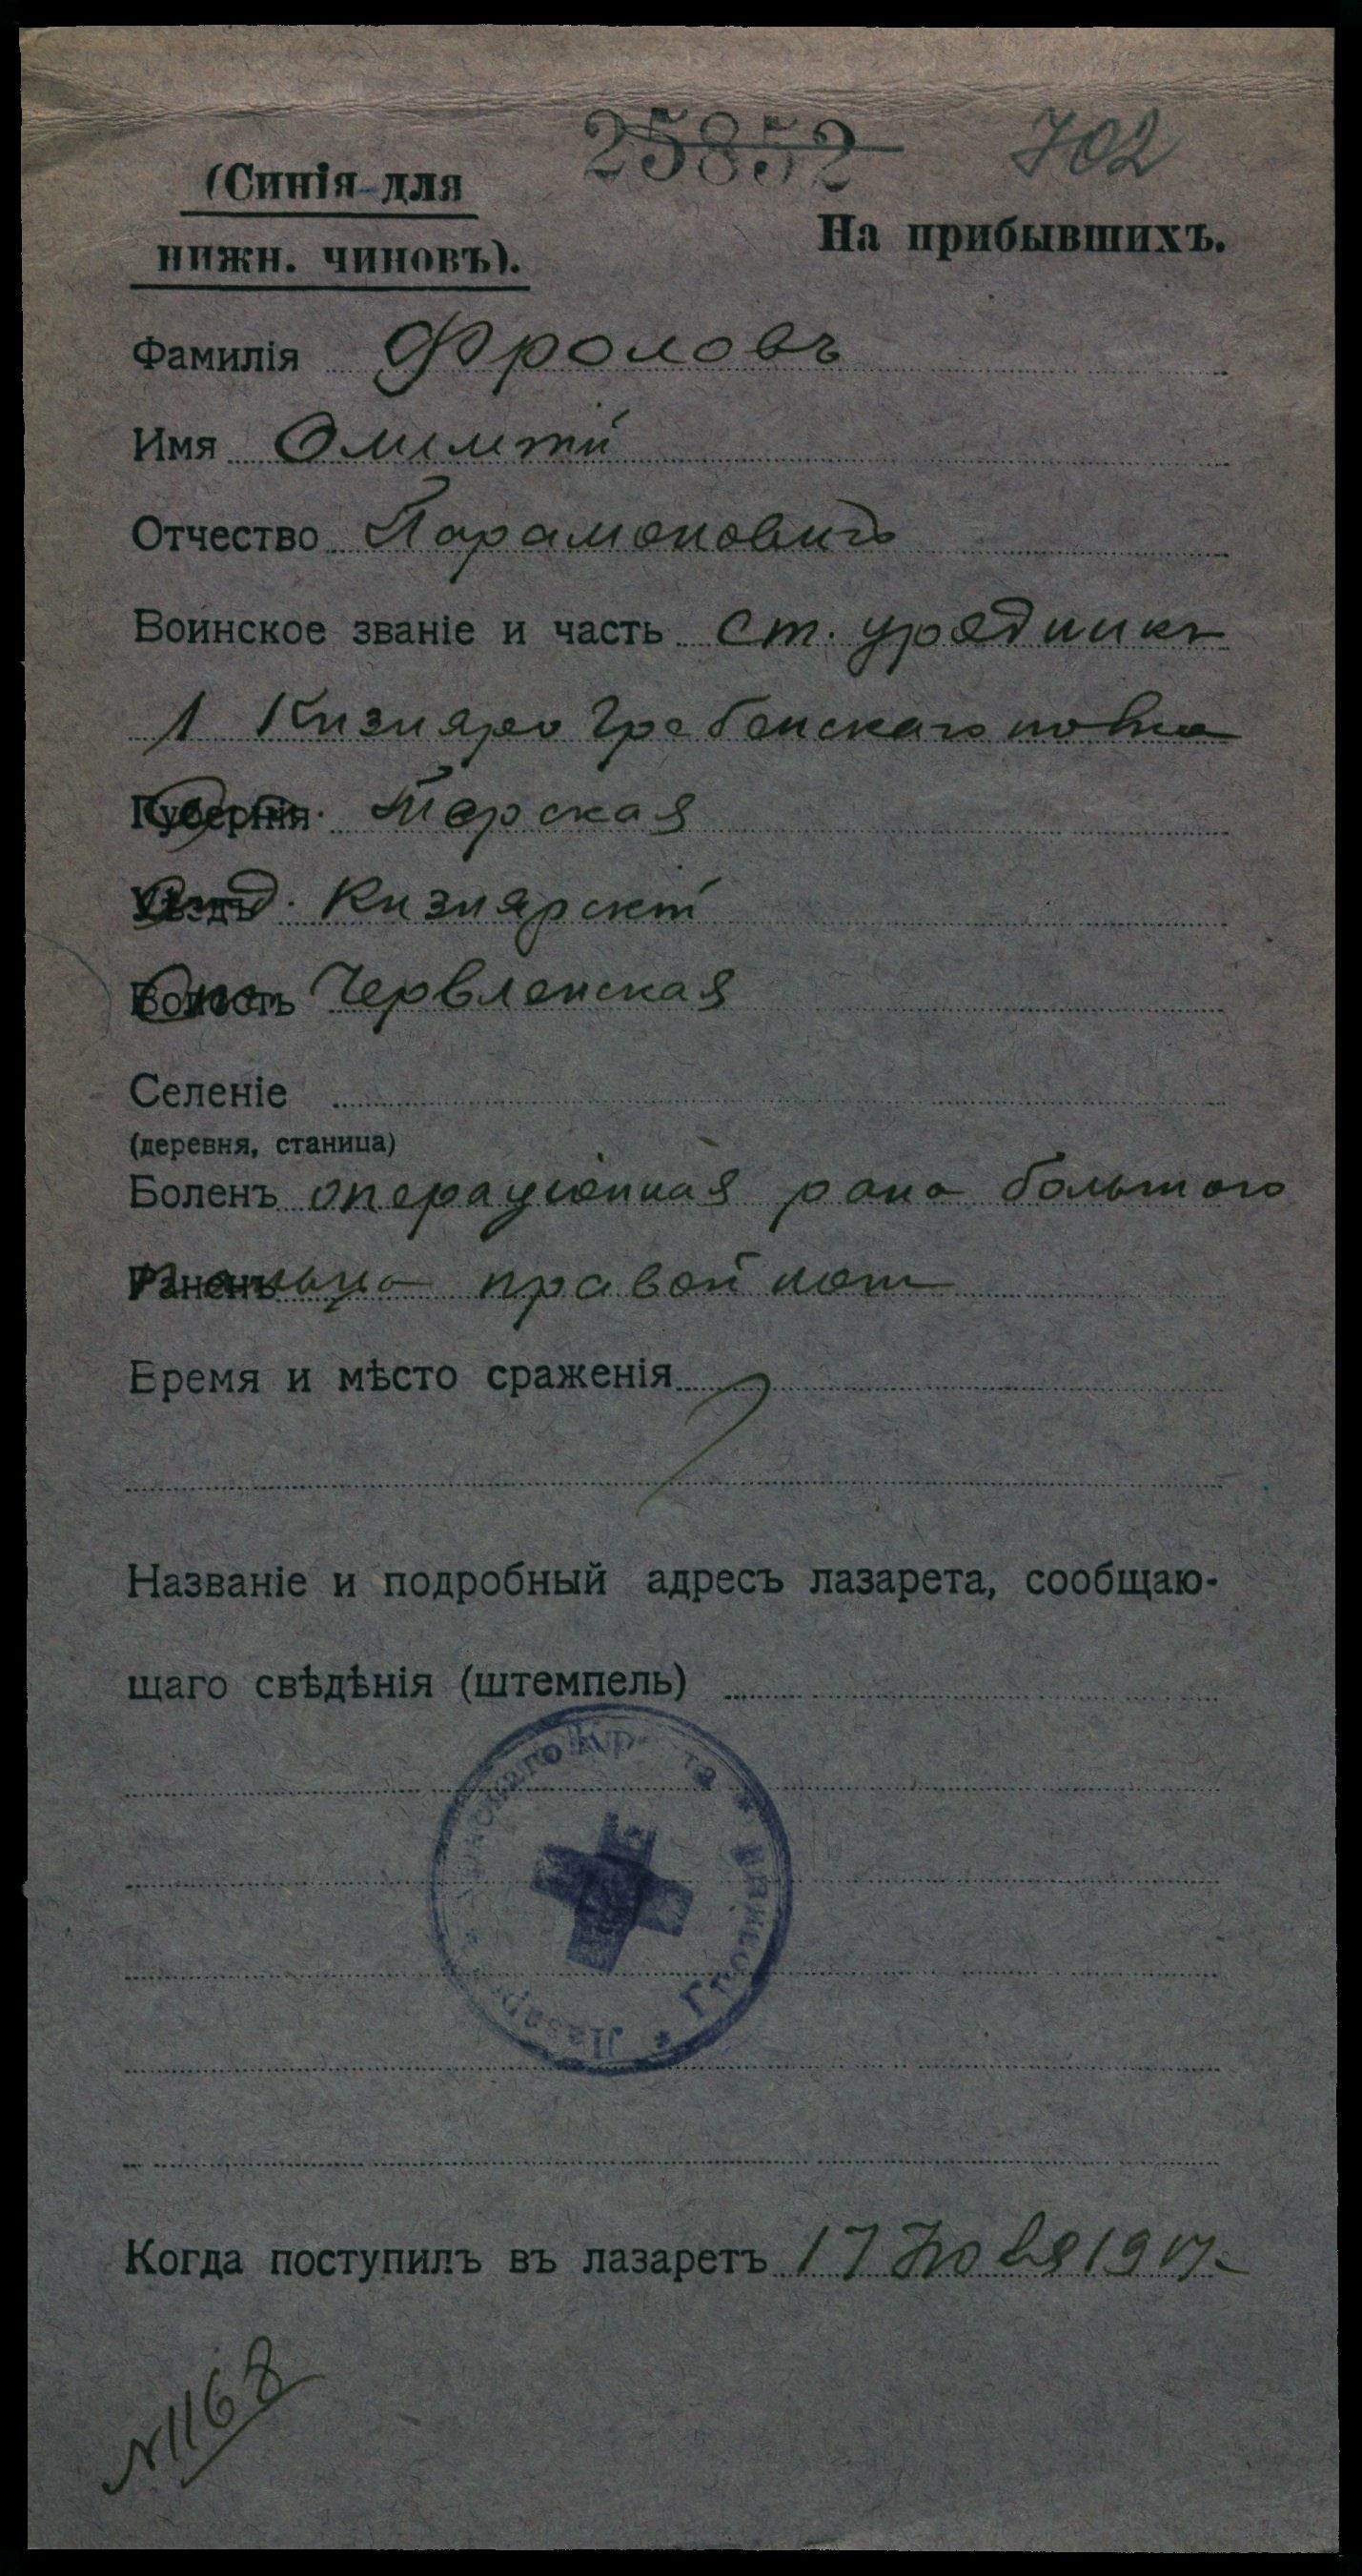 25852 702
(Синія для
нижн. чиновъ).
На прибывшихъ.
Фамилія Фроловъ
Имя
Отчество Парамоновичъ
Воинское званіе и часть ст. урядникъ
1 Кизляро Гребенскаго полка
Губернія Обл. Терская
Уѣздъ Отд. Кизлярскій
Волость Ст. Червленская
Селеніе
(деревня, станица)
Боленъ операціонная рана большого
Раненъ пальца правой ноги
Время и мѣсто сраженія
Названіе и подробный адресъ лазарета, сообщаю-
щаго свѣдѣнія (штемпель)
Лазар * Грозный *
Когда поступилъ въ лазаретъ 17 Ноября 1917
№1168